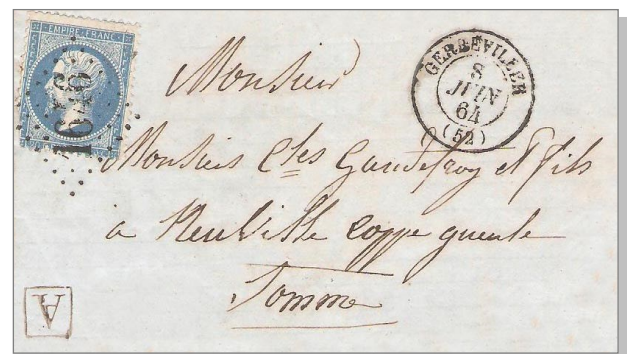 EMPIRE FRANC
1646
GERBÉVILLER
8
JUIN
64
(52)
Monsieur
Monsieur Ches Gaudefroy et fils
à Neuville Coppegueule
Somme
A